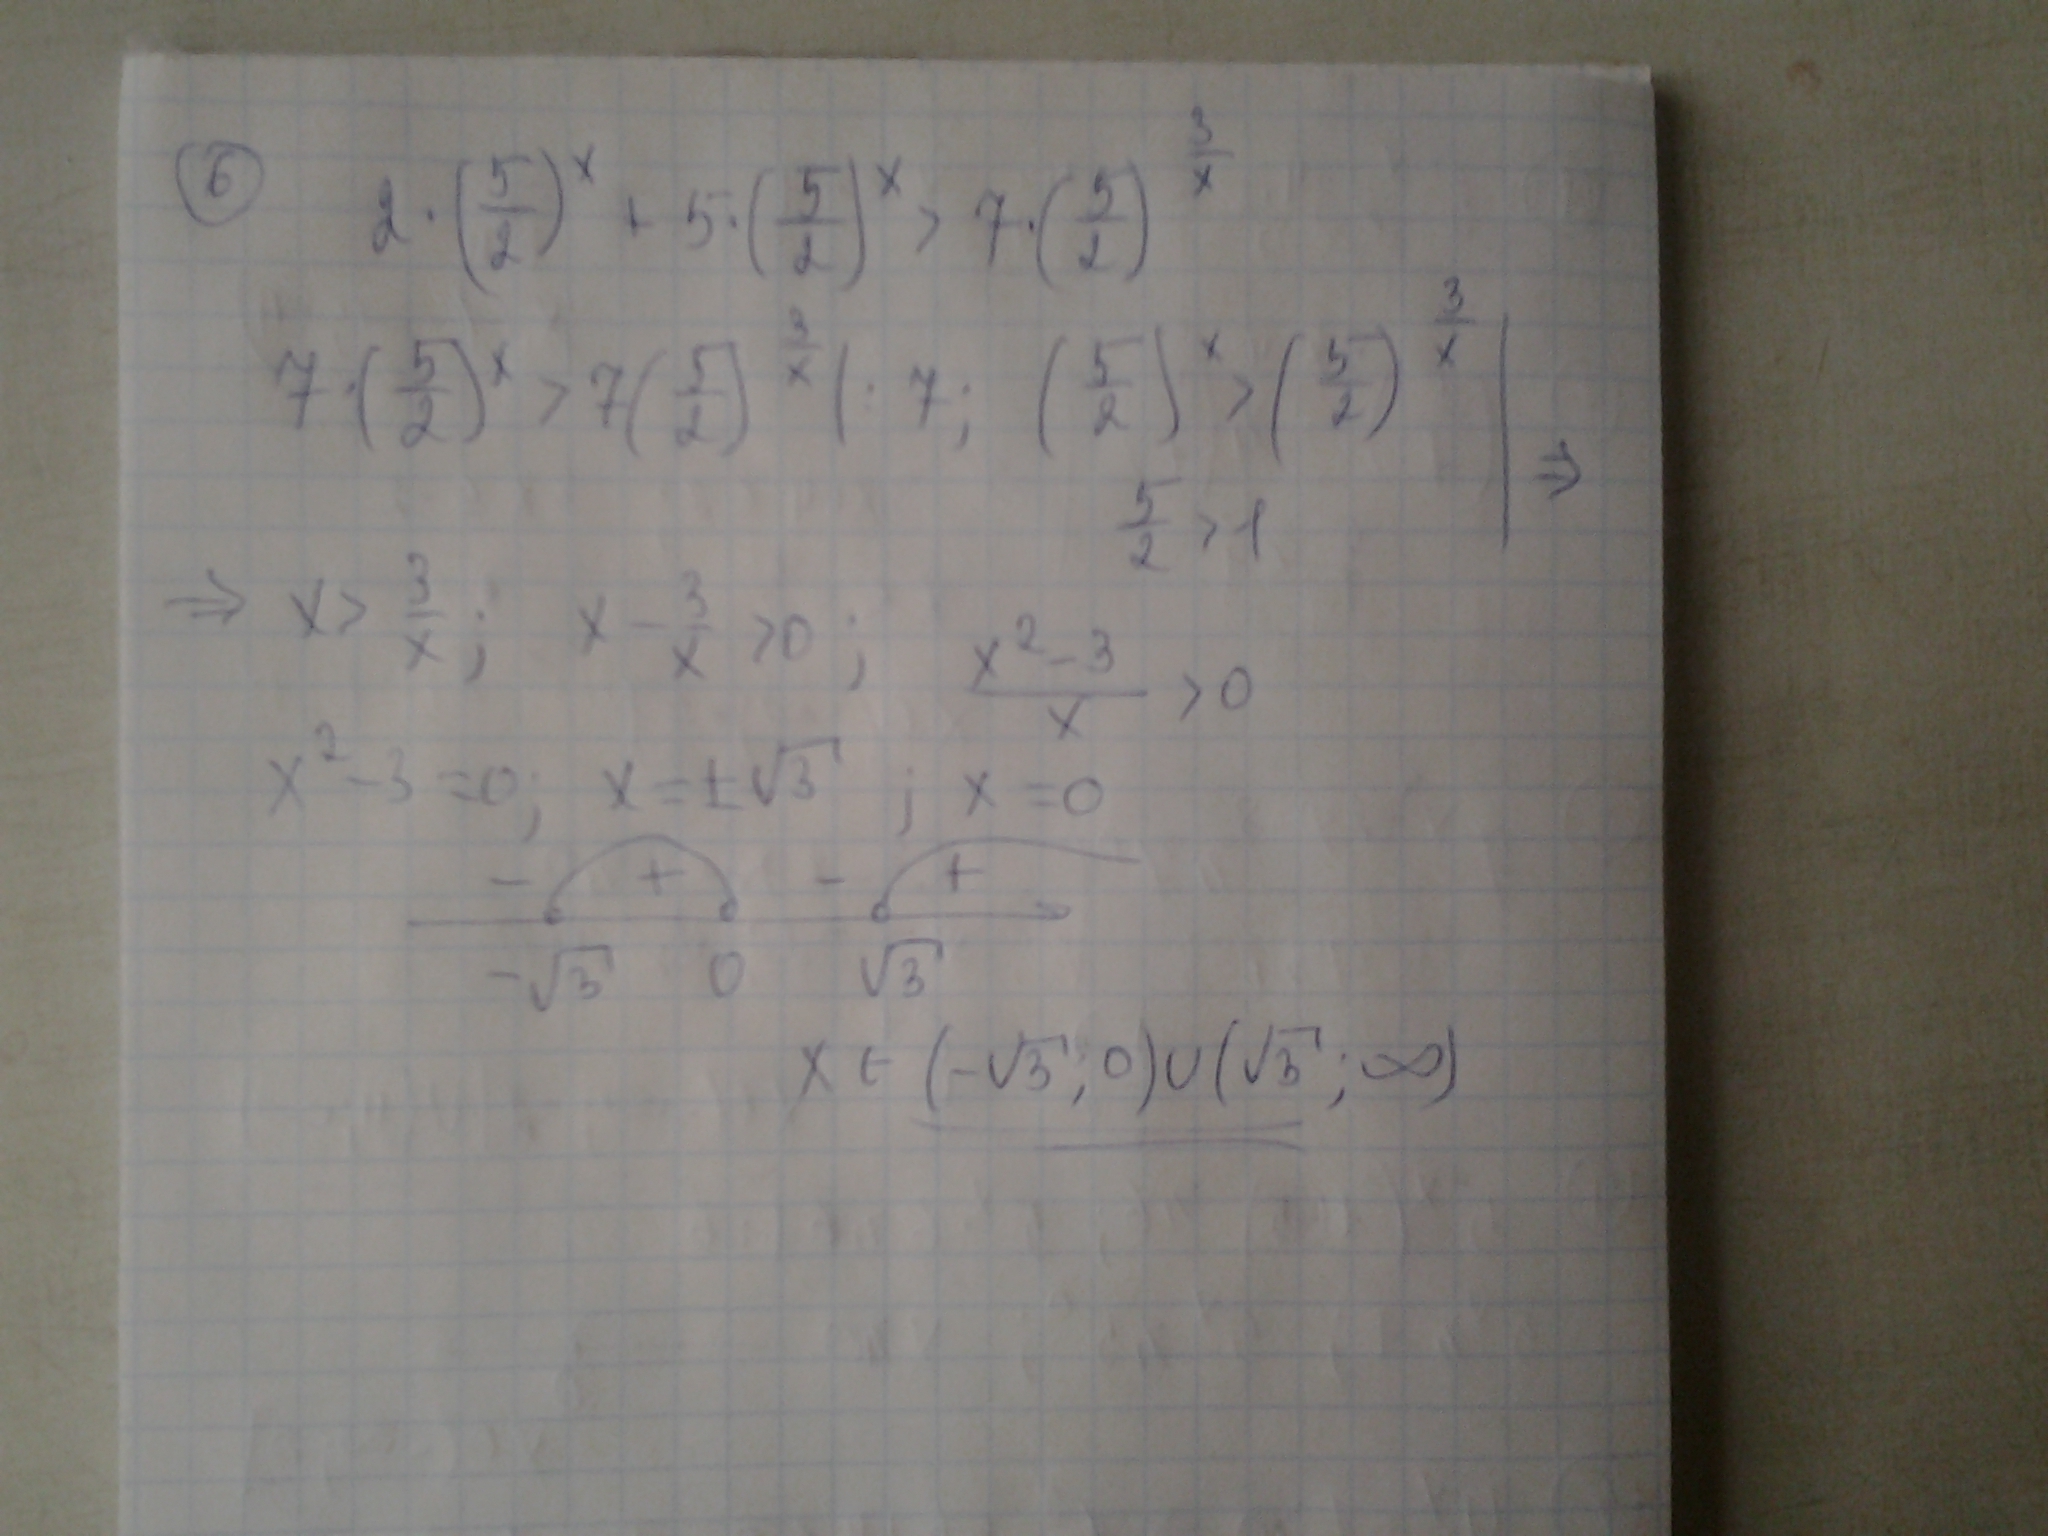 6 2·(5/2)^x + 5·(5/2)^x > 7·(5/2)^(3/x)
7·(5/2)^x > 7(5/2)^(3/x) | : 7; (5/2)^x > (5/2)^(3/x) | ⇒
5/2 > 1
⇒ x > 3/x; x - 3/x > 0; (x² - 3)/x > 0
x² - 3 = 0; x = ±√3; x = 0
- + - +
-√3 0 √3
x ∈ (-√3; 0)∪(√3; ∞)